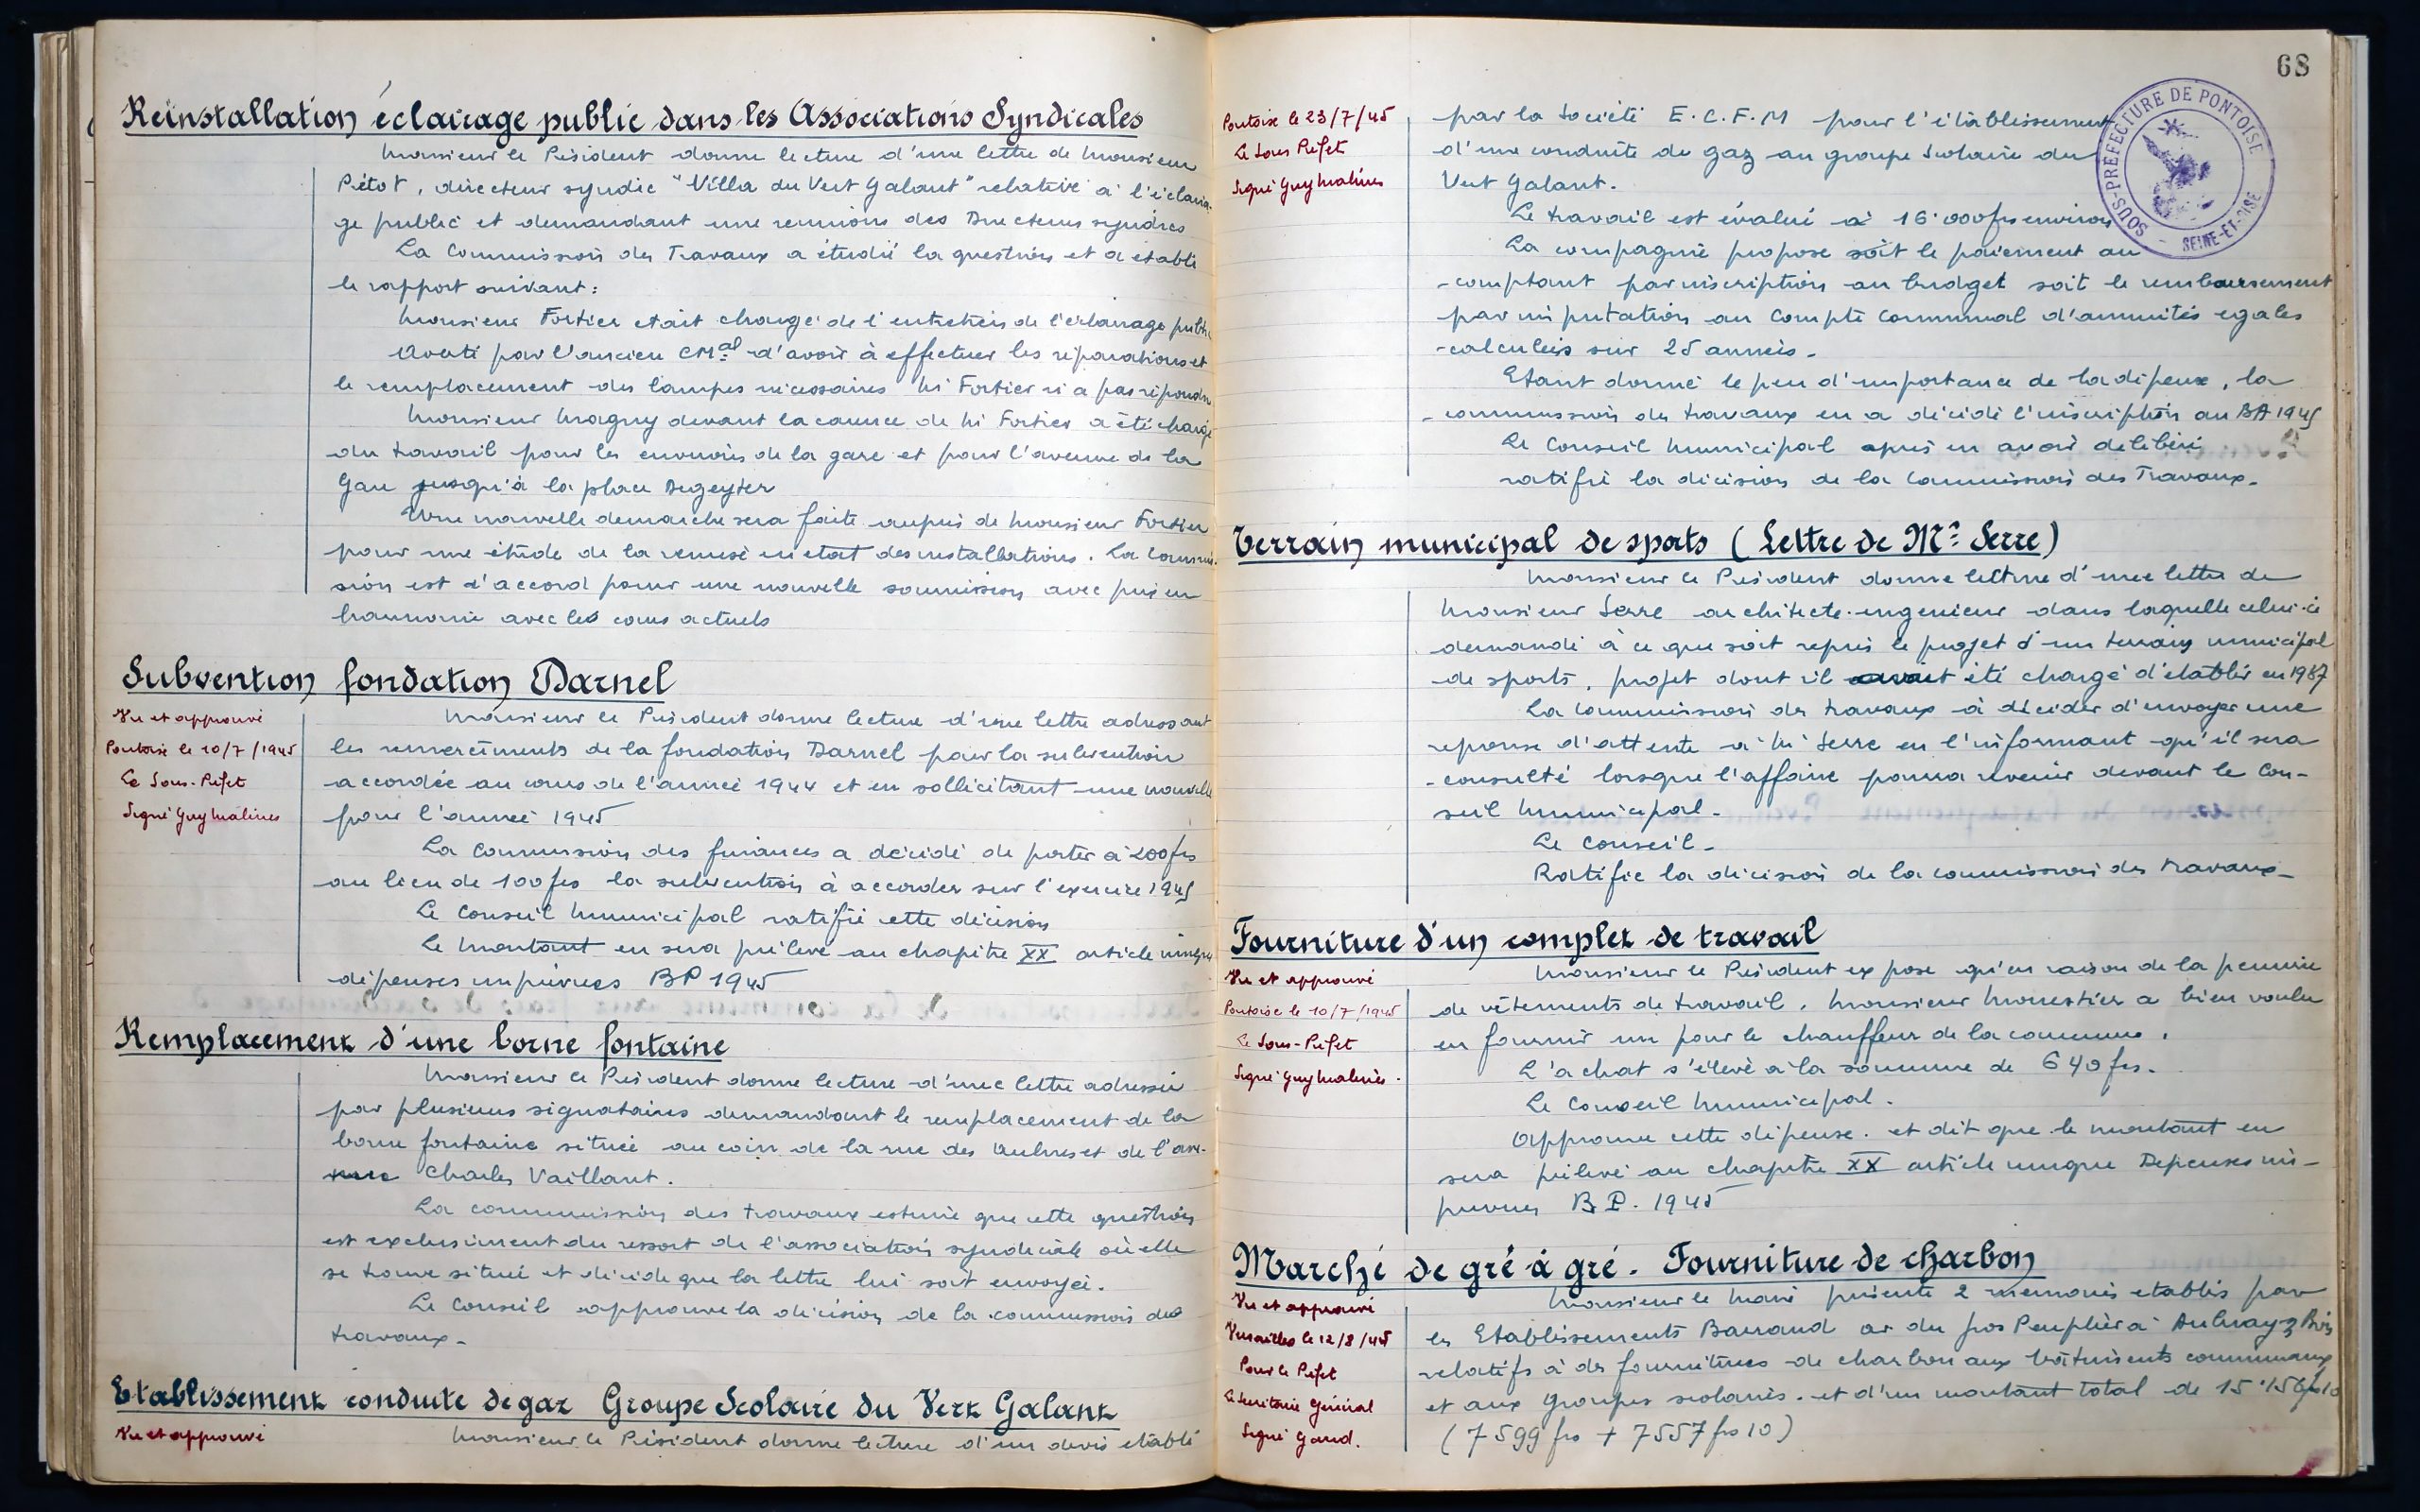 Réinstallation éclairage public dans les Associations Syndicales
Monsieur le Président donne lecture d'une lettre de Monsieur
Prétot, directeur syndic "Villa du Vert Galant" relative à l'éclaira-
ge public et demandant une reunion des Directeurs syndics
La Commission des Travaux a étudié la question et a établi
le rapport suivant :
Monsieur Fortier etait chargé de l'entretien de l'éclairage public
Averti par l'ancien CMal d'avoir à effectuer les réparations et
le remplacement des lampes nécessaires Mr Fortier n'a pas répondu
Monsieur Magny devant la carence de Mr Fortier a été chargé
du travail pour les environs de la gare et pour l'avenue de la
Gare jusqu'à la place Degeyter
Une nouvelle demarche sera faite auprès de Monsieur Fortier
pour une étude de la remise en etat des installations. La commis-
sion est d'accord pour une nouvelle soumission avec prix en
harmonie avec les cours actuels
Subvention fondation Darnel
Vu et approuvé
Pontoise le 10/7/1945
Le Sous-Préfet
Signé Guy Malines
Monsieur le Président donne lecture d'une lettre adressant
les remerciments de la fondation Darnel pour la subvention
accordée au cours de l'année 1944 et en sollicitant une nouvelle
pour l'année 1945
La Commission des finances a décidé de porter à 200 frs
au lieu de 100 frs la subvention à accorder sur l'exercice 1945
Le Conseil Municipal ratifie cette décision
Le montant en sera prélevé au chapitre XX article unique
dépenses imprévues BP 1945
Remplacement d'une borne fontaine
Monsieur le Président donne lecture d'une lettre adressée
par plusieurs signataires demandant le remplacement de la
borne fontaine située au coin de la rue des Aulnes et de l'ave-
nue Charles Vaillant.
La commission des travaux estime que cette question
est exclusiment du ressort de l'association syndicale où elle
se trouve située et décide que la lettre lui soit envoyée.
Le Conseil approuve la décision de la commission des
travaux.
Etablissement conduite de gaz Groupe Scolaire du Vert Galant
Vu et approuvé
Monsieur le Président donne lecture d'un devis etabli
68
SOUS-PRÉFECTURE DE PONTOISE
SEINE-ET-OISE
Pontoise le 23/7/45
Le Sous Préfet
Signé Guy Malines
par la Société E.C.F.M pour l'établissement
d'une conduite de gaz au groupe Scolaire du
Vert Galant.
Le travail est évalué à 16.000 frs environ
La compagnie propose soit le paiement au
comptant par inscription au budget soit le remboursement
par imputation au Compte Communal d'annuités egales
calculées sur 25 années.
Etant donné le peu d'importance de la dépense, la
commission des travaux en a décidé l'inscription au BA 1945
Le Conseil Municipal après en avoir deliberé
ratifie la décision de la Commission des Travaux.
Terrain municipal de sports (Lettre de Mr Serre)
Monsieur le Président donne lecture d'une lettre de
Monsieur Serre architecte-ingenieur dans laquelle celui-ci
demande à ce que soit repris le projet d'un terrain municipal
de sports, projet dont il avait été chargé d'établir en 1937
La Commission des travaux à décider d'envoyer une
reponse d'attente à Mr Serre en l'informant qu'il sera
consulté lorsque l'affaire pourra revenir devant le Con-
seil Municipal.
Le Conseil.
Ratifie la décision de la commission des travaux.
Fourniture d'un complet de travail
Vu et approuvé
Pontoise le 10/7/1945
Le Sous-Préfet
Signé Guy Malines.
Monsieur le Président expose qu'en raison de la penurie
de vêtements de travail. Monsieur Monestier a bien voulu
en fournir un pour le chauffeur de la commune.
L'achat s'élève à la somme de 640 frs.
Le Conseil Municipal.
Approuve cette dépense. et dit que le montant en
sera prélevé au chapitre XX article unique Depenses im-
prevues B.P. 1945
Marché de gré à gré. Fourniture de charbon
Vu et approuvé
Versailles le 12/8/45
Pour le Préfet
Le Secrétaire Général
Signé Gaud.
Monsieur le Maire présente 2 memoires etablis par
les Etablissements Barraud du gros Peuplier à Aulnay s Bois
relatifs à des fournitures de charbon aux bâtiments communaux
et aux groupes scolaires. et d'un montant total de 15.156 frs 10
(7599 frs + 7557 frs 10)